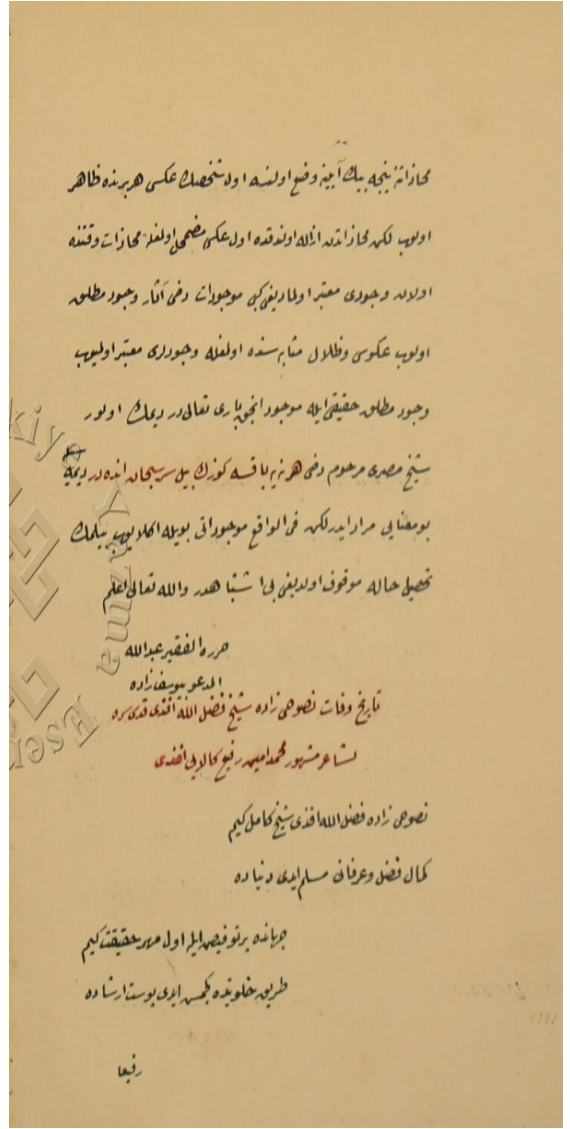 محاذاتنه نیجه بیك آیینه وضع اولنسه اول شخصك عكسی هر برنده ظاهر
اولوب لكن محاذاتدن ازاله اولندقده اول عكس مضمحل اولمغله محاذات وقتنده
اولان وجودی معتبر اولمادیغی كبی موجودات دخی آثار وجود مطلق
اولوب عكوس وظلال مثابه سنده اولمغله وجودلری معتبر اولمیوب
وجود مطلق حقیقی ایله موجود انجق باری تعالی در دیمك اولور
شیخ مصری مرحوم دخی هر نه یه باقسه كوزك بیل سر سبحان انده در دیمه
بو معنایی مراد ایدر لكن فی الواقع موجوداتی بویله اكلایوب بیلمك
تحصیل حاله موقوف اولدیغی بی اشتباهدر والله تعالی اعلم
حرره الفقیر عبدالله
المدعو بیوسف زاده
تاریخ وفات نصوحی زاده شیخ فضل الله افندی قدس سره
لشاعر مشهور محمد امین رفیع كالایی افندی
نصوحی زاده فضل الله افندی شیخ كامل كیم
كمال فضل وعرفانی مسلم ایدی دنیاده
جهانده پرتو فیض ایله اول مهر حقیقت كیم
طریق خلوتیده ایدی پوست ارشاده
رفیعا
Yazma